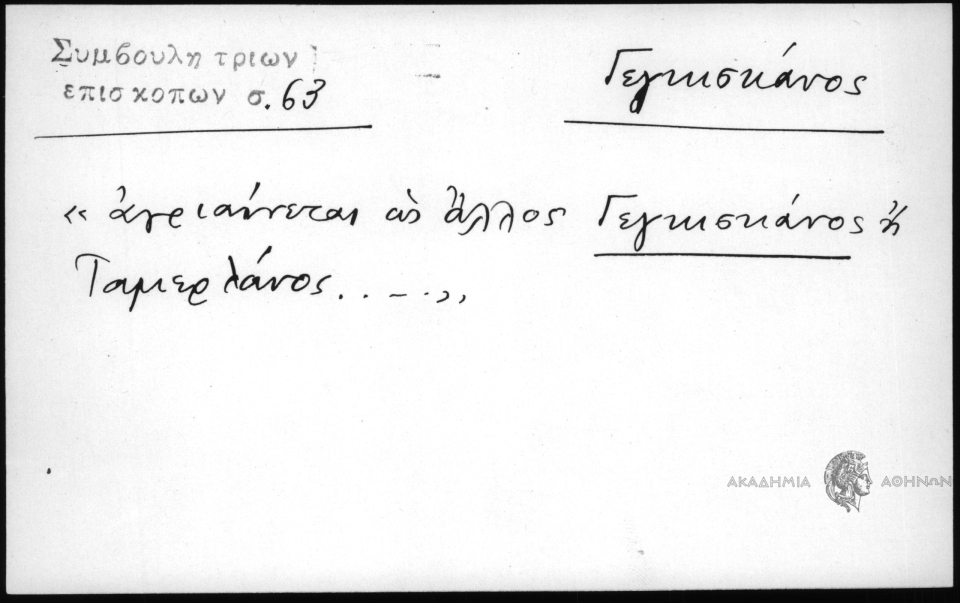 Συμβουλη τριων
επισκοπων σ. 63
Γεγκισκάνος
« ἀγριαίνεται ὡς ἄλλος Γεγκισκάνος ἢ
Ταμερλάνος . . — . ,,
ΑΚΑΔΗΜΙΑ ΑΘΗΝΩΝ